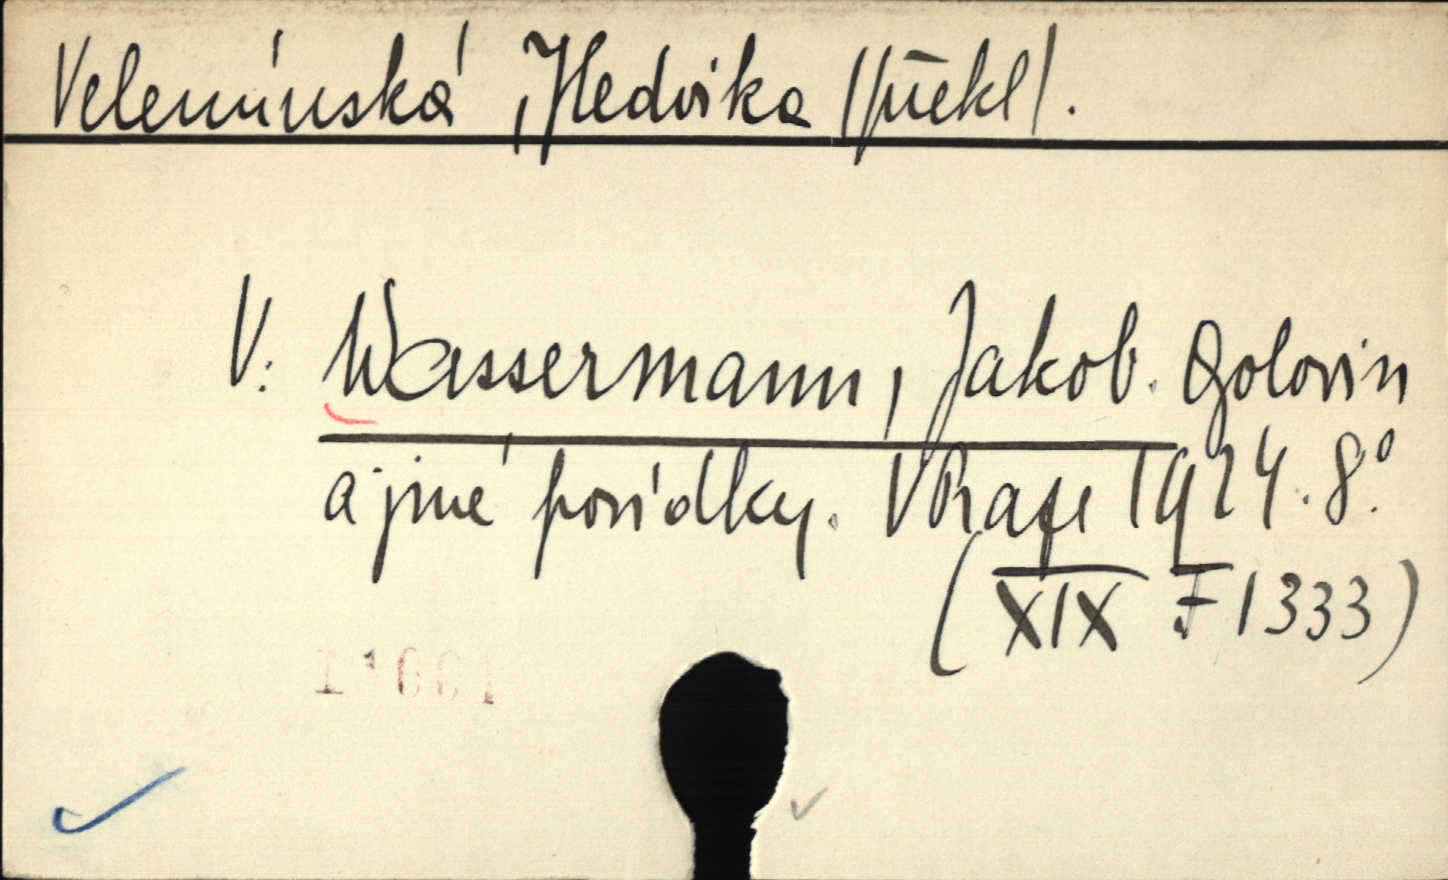 Velemínská, Hedvika /překl/.
V: Wassermann, Jakob. Golovin
a jiné povídky. V Praze 1924. 8°.
(XIX F 1333)